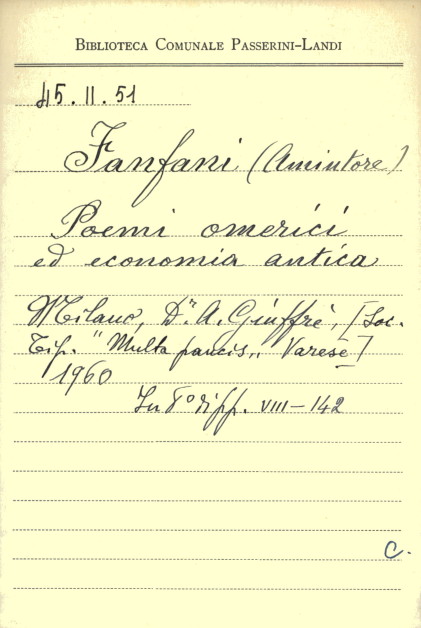 BIBLIOTECA COMUNALE PASSERINI-LANDI
45.II.51
Fanfani (Amintore)
Poemi omerici
ed economia antica
Milano, Dr. A. Giuffrè, [Soc.
Tip. "Multa paucis„ Varese]
1960
In 8° di pp. VIII-142
C.